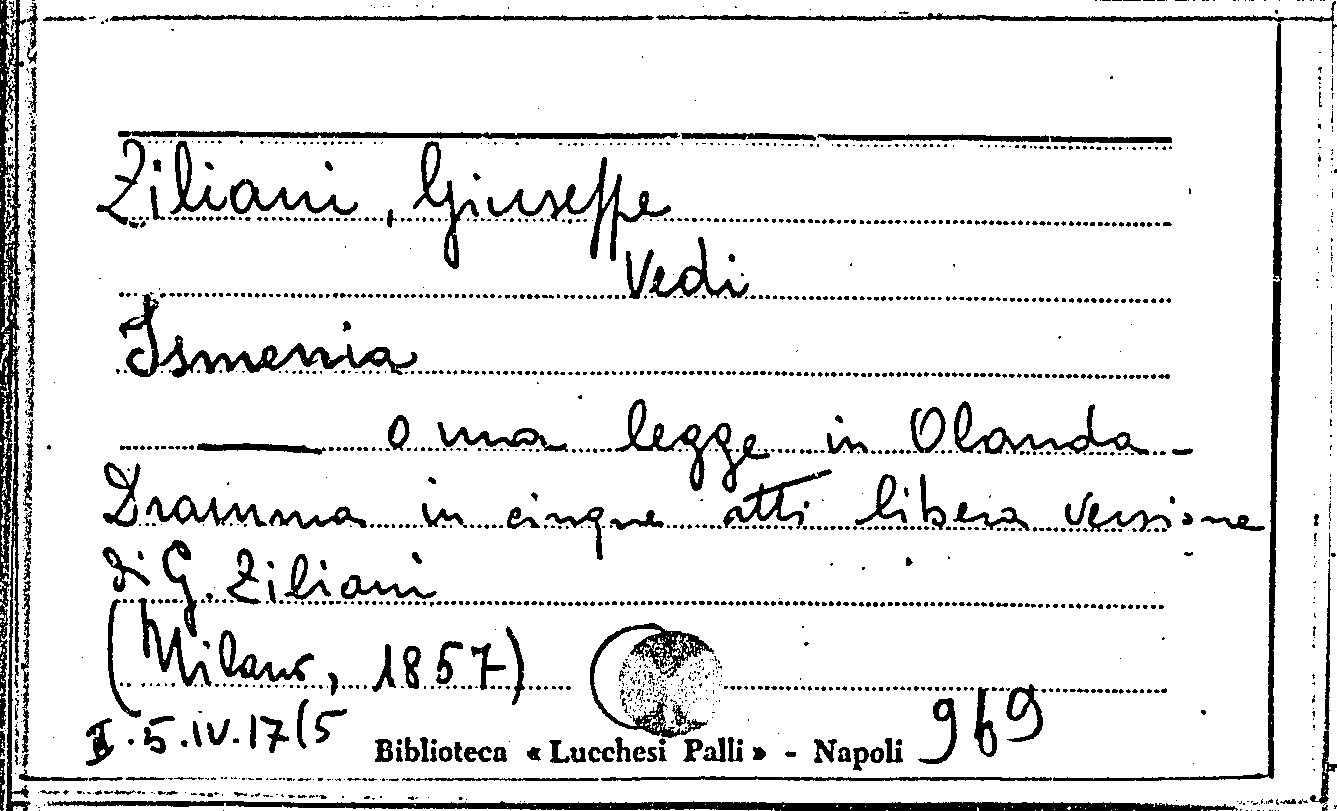 Ziliani, Giuseppe
Vedi
Ismenia
o una legge in Olanda -
Dramma in cinque atti libera versione
di G. Ziliani
(Milano, 1857)
II.5.IV.17(5
Biblioteca « Lucchesi Palli » - Napoli
969